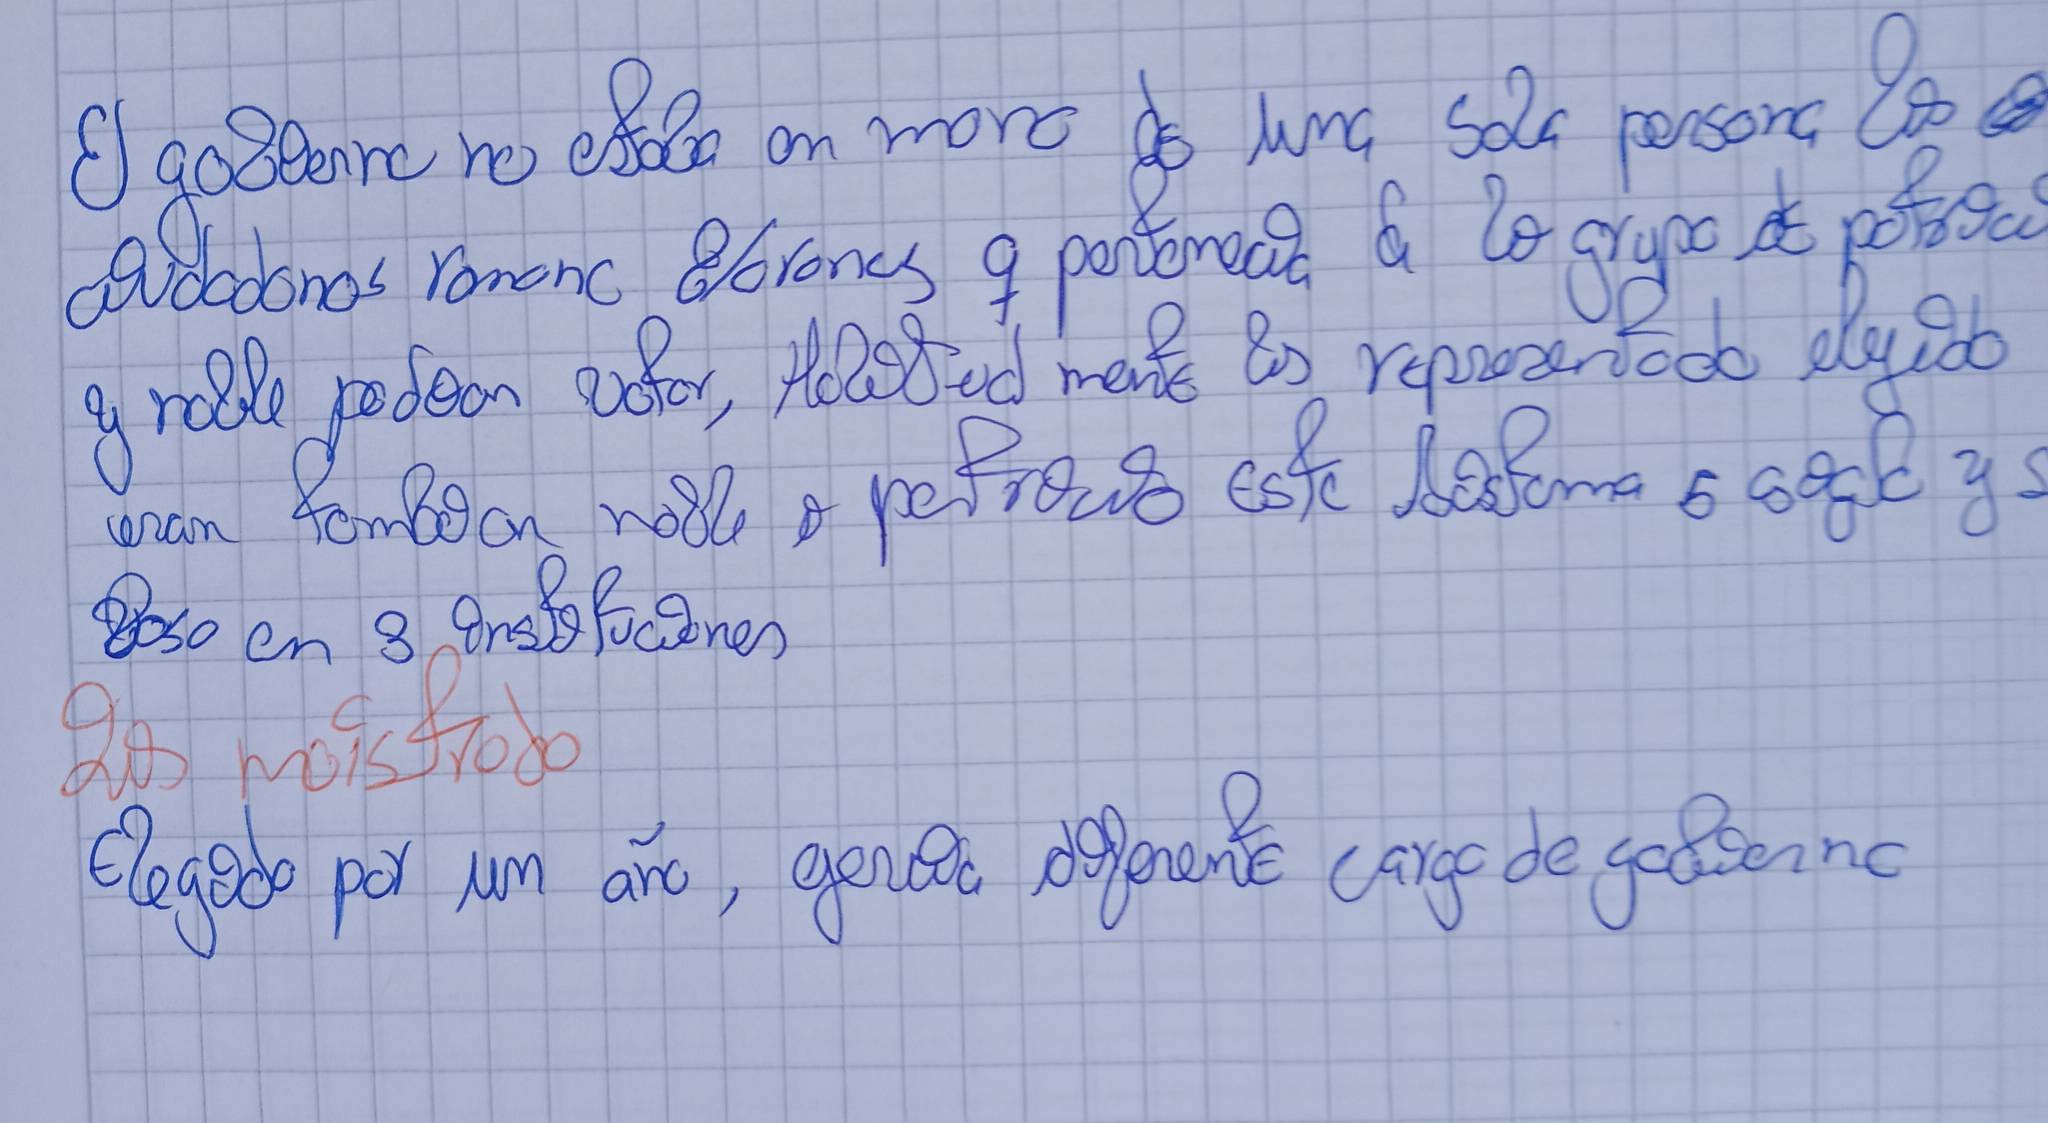 El gobierno no estaba en mano de una sola persona los
ciudadanos romano varones q pertenecia a lo grupo de patricios
y noble podian votar, Habitual mente los representado elegido
eran tambien noble o patricio este sistema s
baso en 3 instituciones
Los maistrado
Elegido por un año, gercia diferente cargo de gobierno